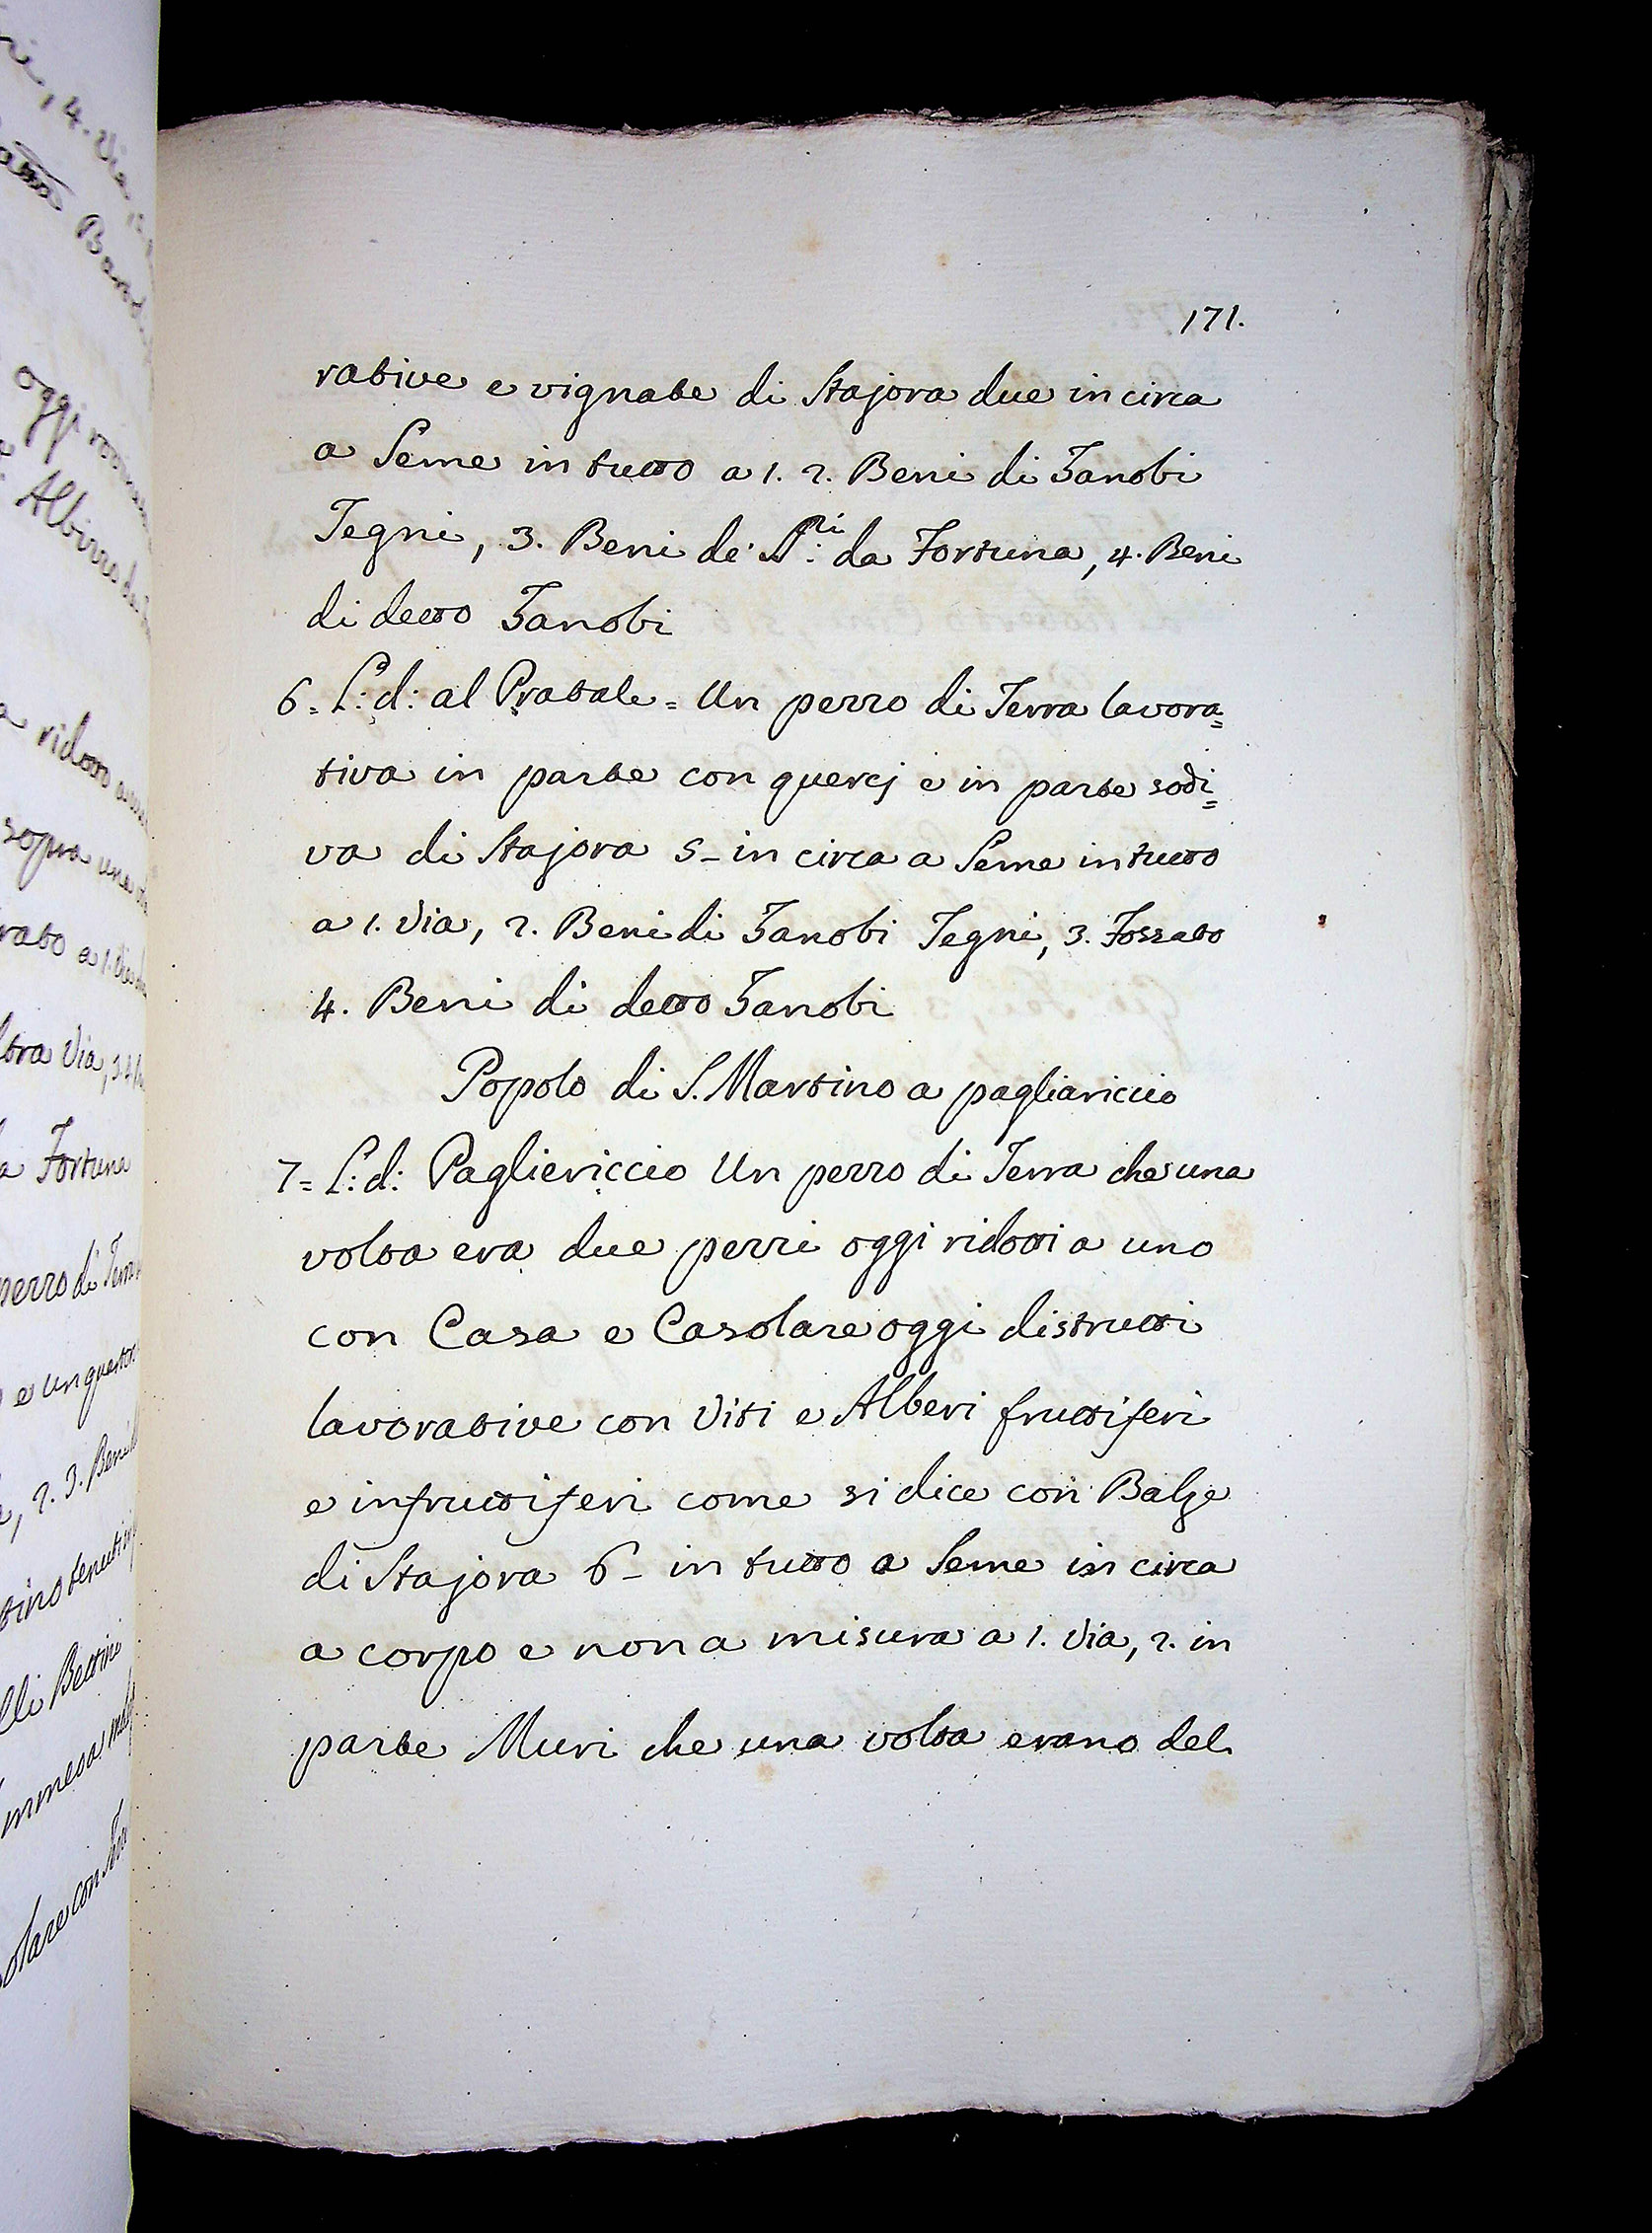 171.
rative e vignate di Stajora due in circa
a Seme in tutto a 1. 2. Beni di Zanobi
Tegni, 3. Beni de' da Fortuna, 4. Beni
di detto Zanobi
6= L: d: al Pratale = Un pezzo di Terra lavora=
tiva in parte con quercj e in parte sodi=
va di Stajora 5- in circa a Seme in tutto
a 1. Via, 2. Beni di Zanobi Tegni, 3. Fossato
4. Beni di detto Zanobi
Popolo di S. Martino a pagliariccio
7= L: d: Pagliericcio Un pezzo di Terra che una
volta era due pezzi oggi ridotti a uno
con Casa e Casolare oggi distrutti
lavorative con Viti e Alberi fruttiferi
e infruttiferi come si dice con Balze
di Stajora 6- in tutto a Seme in circa
a corpo e non a misura a 1. Via, 2. in
parte Muri che una volta erano del